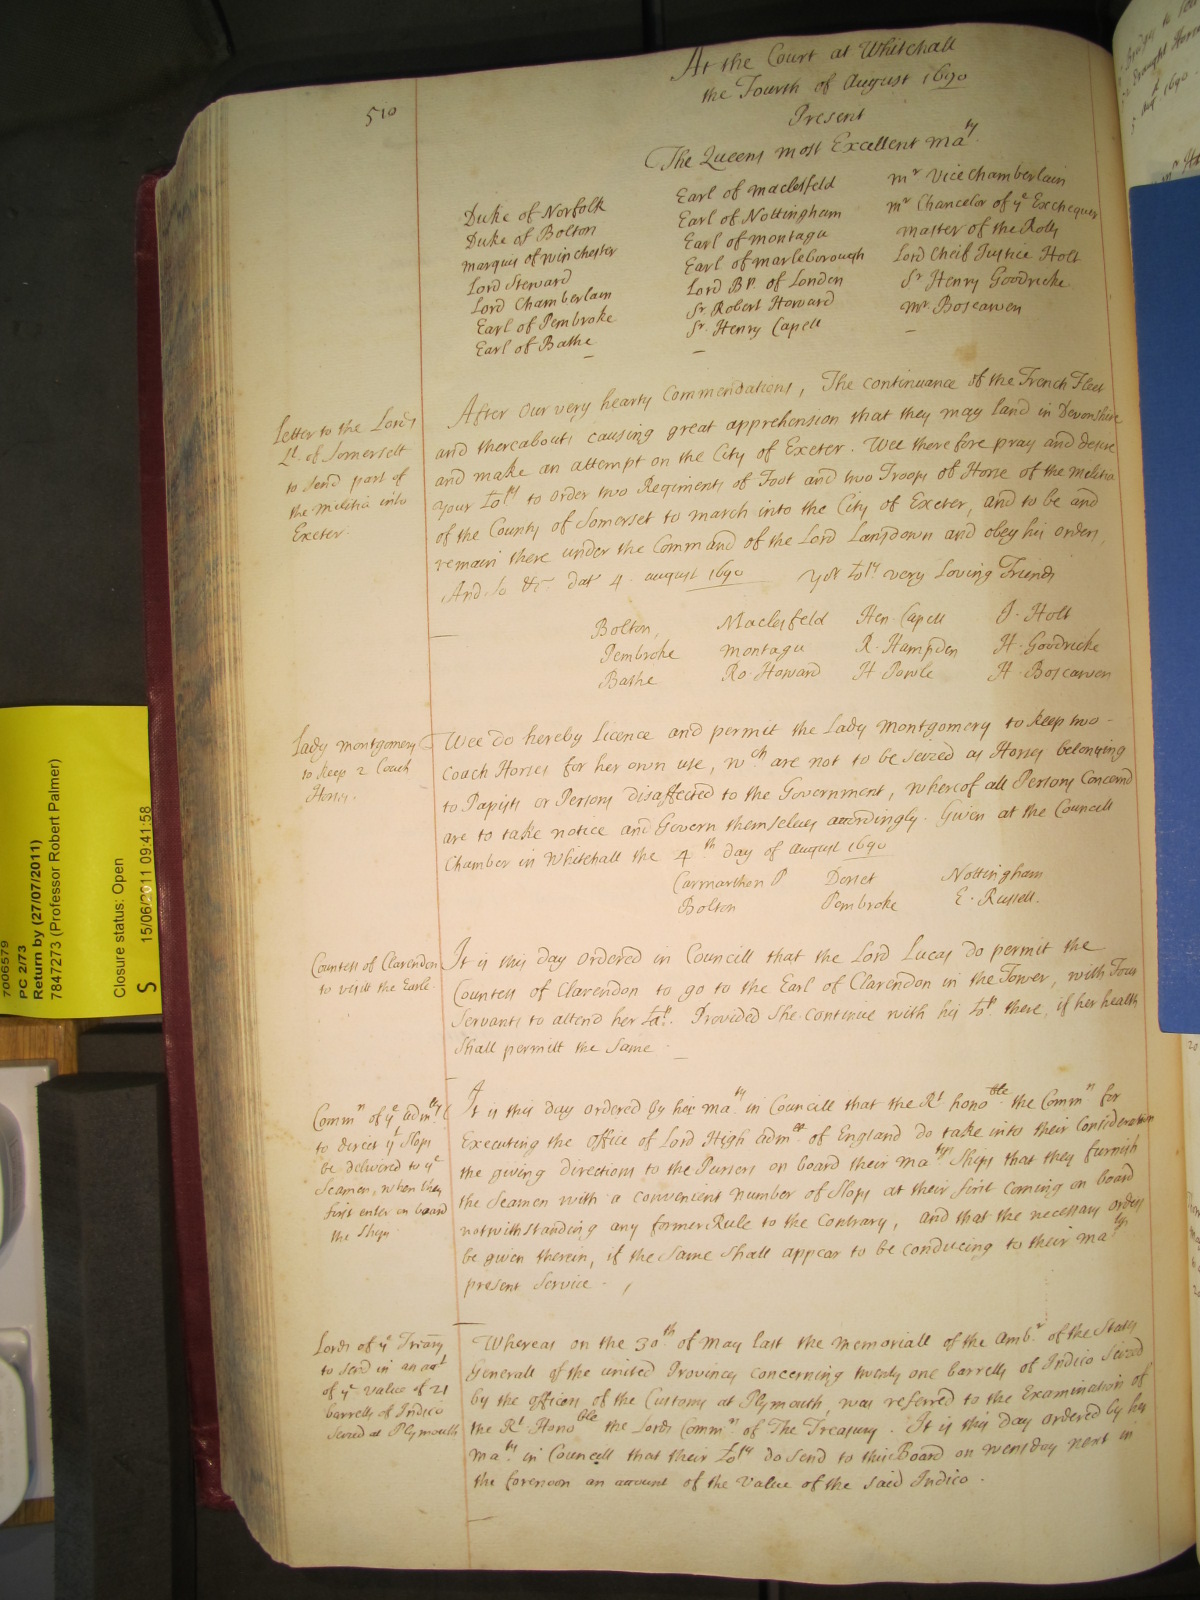 510
At the Court at Whitehall
the Fourth of August 1690
Present
The Queens most Excellent Maty
Duke of Norfolk
Duke of Bolton
Marquis of Winchester
Lord Steward
Lord Chamberlain
Earl of Pembroke
Earl of Bathe
Earl of Maclesfeld
Earl of Nottingham
Earl of Montagu
Earl of Marleborough
Lord Bp of London
Sr Robert Howard
Sr Henry Capell
Mr Vice Chamberlain
Mr Chancelor of ye Exchequer
Master of the Rolls
Lord Cheif Justice Holt
Sr Henry Goodricke
Mr. Boscawen
Letter to the Lords
Lt. of Somersett
to send part of
the Militia into
Exeter.
After Our very hearty Commendations, The continuance of the French Fleet
and thereabouts causing great apprehension that they may land in Devonshire
and make an attempt on the City of Exeter. Wee therefore pray and desire
your Lopp to order two Regiments of Foot and two Troops of Horse of the Militia
of the County of Somerset to march into the City of Exeter, and to be and
remain there under the Command of the Lord Lansdown and obey his orders,
And so &c dat 4 August 1690 Yor Lopps very Loving Friends
Bolton, Maclesfeld Hen Capell J. Holt
Pembroke Montagu R. Hampden H. Goodricke
Bathe Ro. Howard H Powle H. Boscawen
Lady Montgomery
to keep 2 Coach
Horses.
Wee do hereby Licence and permit the Lady Montgomery to keep two
Coach Horses for her own use, wch are not to be seized as Horses belonging
to Papists or Persons disaffected to the Government, whereof all Persons Concernd
are to take notice and Govern themselves accordingly. Given at the Councell
Chamber in Whitehall the 4th day of August 1690
Carmarthen P Dorset Nottingham
Bolton Pembroke E. Russell.
Countess of Clarendon
to visitt the Earle.
It is this day ordered in Councill that the Lord Lucas do permit the
Countess of Clarendon to go to the Earl of Clarendon in the Tower, with Four
Servants to attend her Lap. Provided she continue with his Lop. there, if her health
shall permitt the same
Commrs of ye Admlty
to direct yt Slops
be delivered to ye
Seamen, when they
first enter on board
the Ships.
It is this day ordered by her Maty in Councill that the Rt honoble the Commrs for
Executing the office of Lord High Admll of England do take into their Consideration
the giving directions to the Pursers on board their Matys Ships that they furnish
the Seamen with a convenient Number of Slops at their first coming on board
notwithstanding any former Rule to the Contrary, and that the necessary orders
be given therein, if the same shall appear to be conducing to their Matys
present Service.
Lords of ye Trēary
to send in an acct
of ye value of 21
barrells of Indico
seized at Plymouth
Whereas on the 30th of May last the Memoriall of the Ambr of the States
Generall of the united Provinces concerning twenty one barrells of Indico seized
by the officers of the Customs at Plymouth, was referred to the Examination of
the Rt Honoble the Lords Commrs of The Treasury. It is this day ordered by her
Maty in Councell that their Lopps do send to this Board on Wensday next in
the forenoon an account of the value of the said Indico.
7006579
PC 2/73
Return by (27/07/2011)
7847273 (Professor Robert Palmer)
Closure status: Open
S 15/06/2011 09:41:58